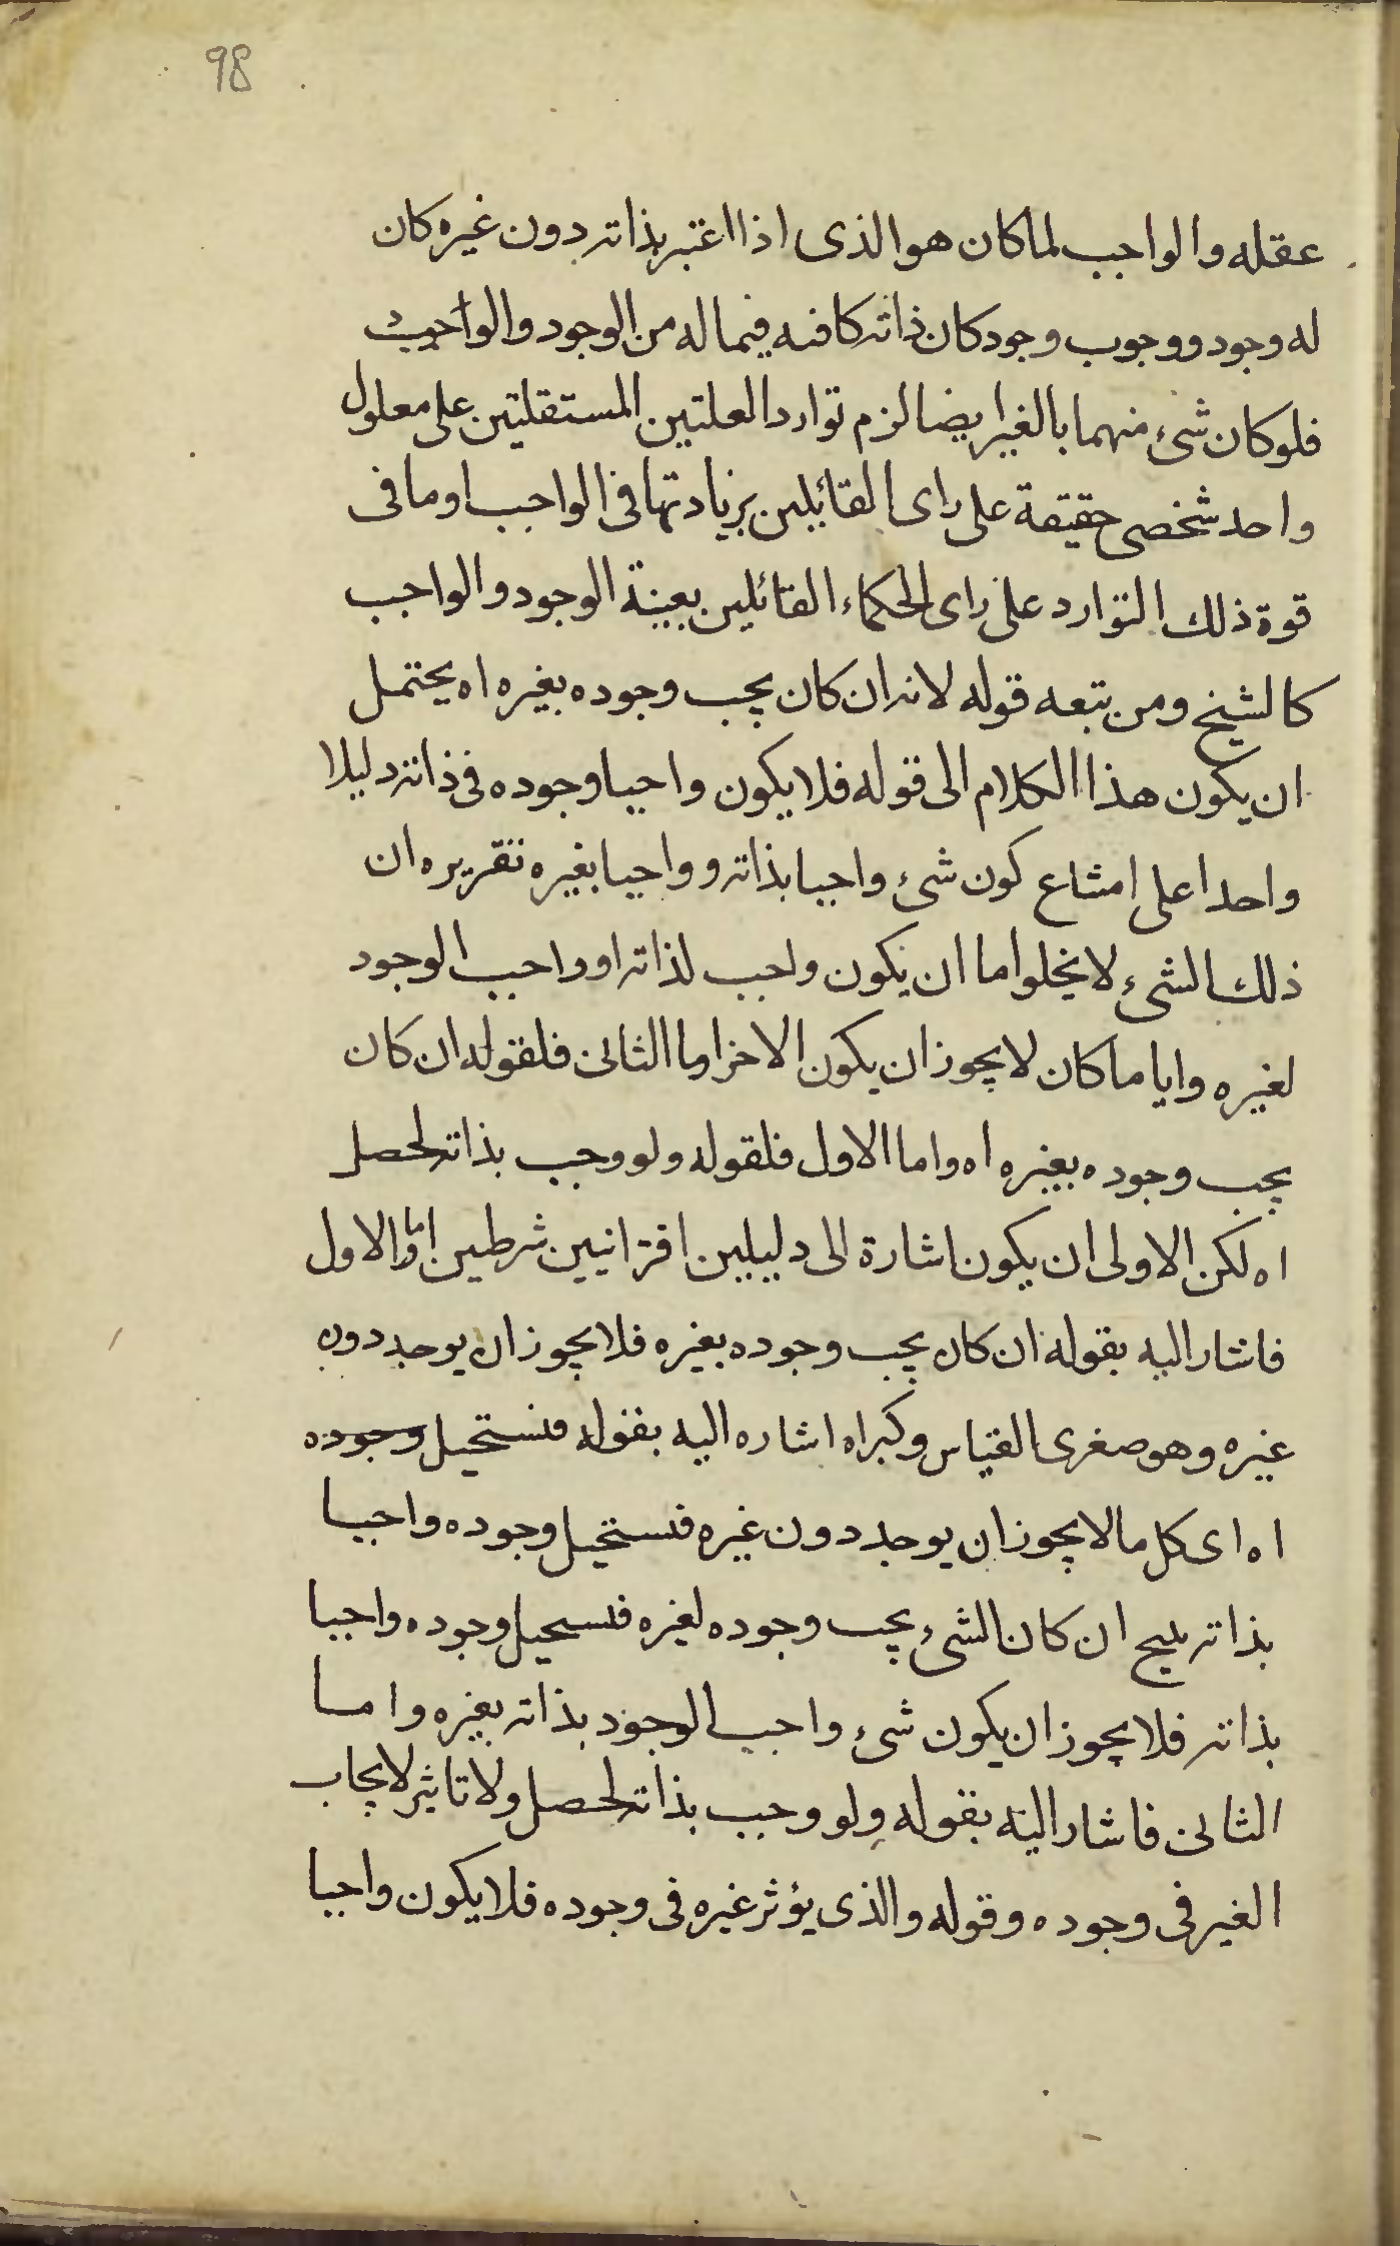 98
عقله والواجب لما كان هو الذى اذا اعتبر بذاته دون غيره كان
له وجود ووجوب وجود كان ذاته كافيه فيما له من الوجود والواجب
فلو كان شئ منهما بالغير ايضا لزم توارد العلتين المستقلتين على معلول
واحد شخصى حقيقة على راى القائلين بزيادتها فى الواجب او ما فى
قوة ذلك التوارد على راى الحكماء القائلين بعينية الوجود والواجب
كالشيخ ومن تبعه قوله لانه ان كان يجب وجوده بغيره اه يحتمل
ان يكون هذا الكلام الى قوله فلا يكون واجبا وجوده فى ذاته دليلا
واحدا على امتناع كون شئ واجبا بذاته وواجبا بغيره تقريره ان
ذلك الشئ لا يخلوا ما ان يكون واجب لذاته او واجب الوجود
لغيره وايا ما كان لا يجوز ان يكون الاخر اما الثانى فلقوله ان كان
يجب وجوده بغيره اه واما الاول فلقوله ولو وجب بذاته لحصل
اه لكن الاولى ان يكون اشارة الى دليلين اقترانيين شرطين اما الاول
فاشار اليه بقوله ان كان يجب وجوده بغيره فلا يجوز ان يوجد دون
غيره وهو صغرى القياس وكبراه اشاره اليه بقوله فيستحيل وجوده
اه اى كل ما لا يجوز ان يوجد دون غيره فيستحيل وجوده واجبا
بذاته ينتج ان كان الشئ يجب وجوده لغيره فيستحيل وجوده واجبا
بذاته فلا يجوز ان يكون شئ واجب الوجود بذاته بغيره واما
الثانى فاشار اليه بقوله ولو وجب بذاته لحصل ولا تاثير لايجاب
الغير فى وجوده وقوله والذى يؤثر غيره فى وجوده فلا يكون واجبا